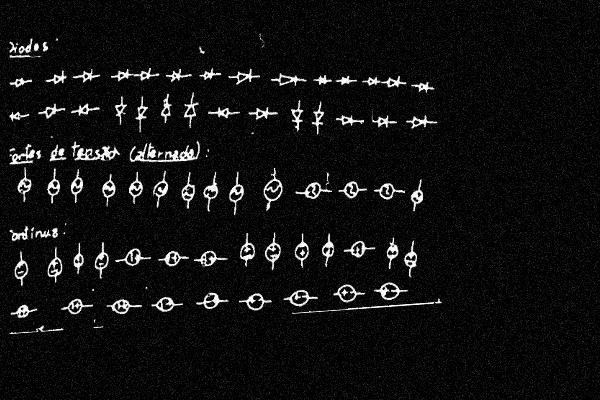 Diodos:
Fontes de Tensão (alternada):
Contínuas: